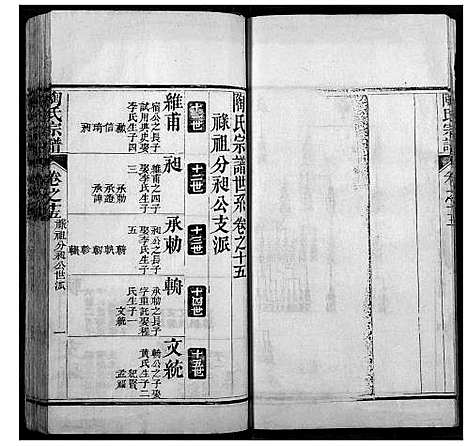 陶氏宗譜世系卷之十五
祿祖分昶公支派
十一世
維甫
宿公之長子
試用典史娶
李氏生子四
勳 信 琦 昶
十二世
昶
維甫之四子
娶李氏生子
三
承勅
承遊
承諱
十三世
承勅
昶公之長子
娶李氏生子
五
十四世
輈
承勅之長子
字重 娶
氏生子一
文統
十五世
文統
輈公之子娶
黃氏生子二
紀賢
孟福
陶氏宗譜
卷之十五
祿祖分昶公世派
一
陶氏宗譜
卷之十五